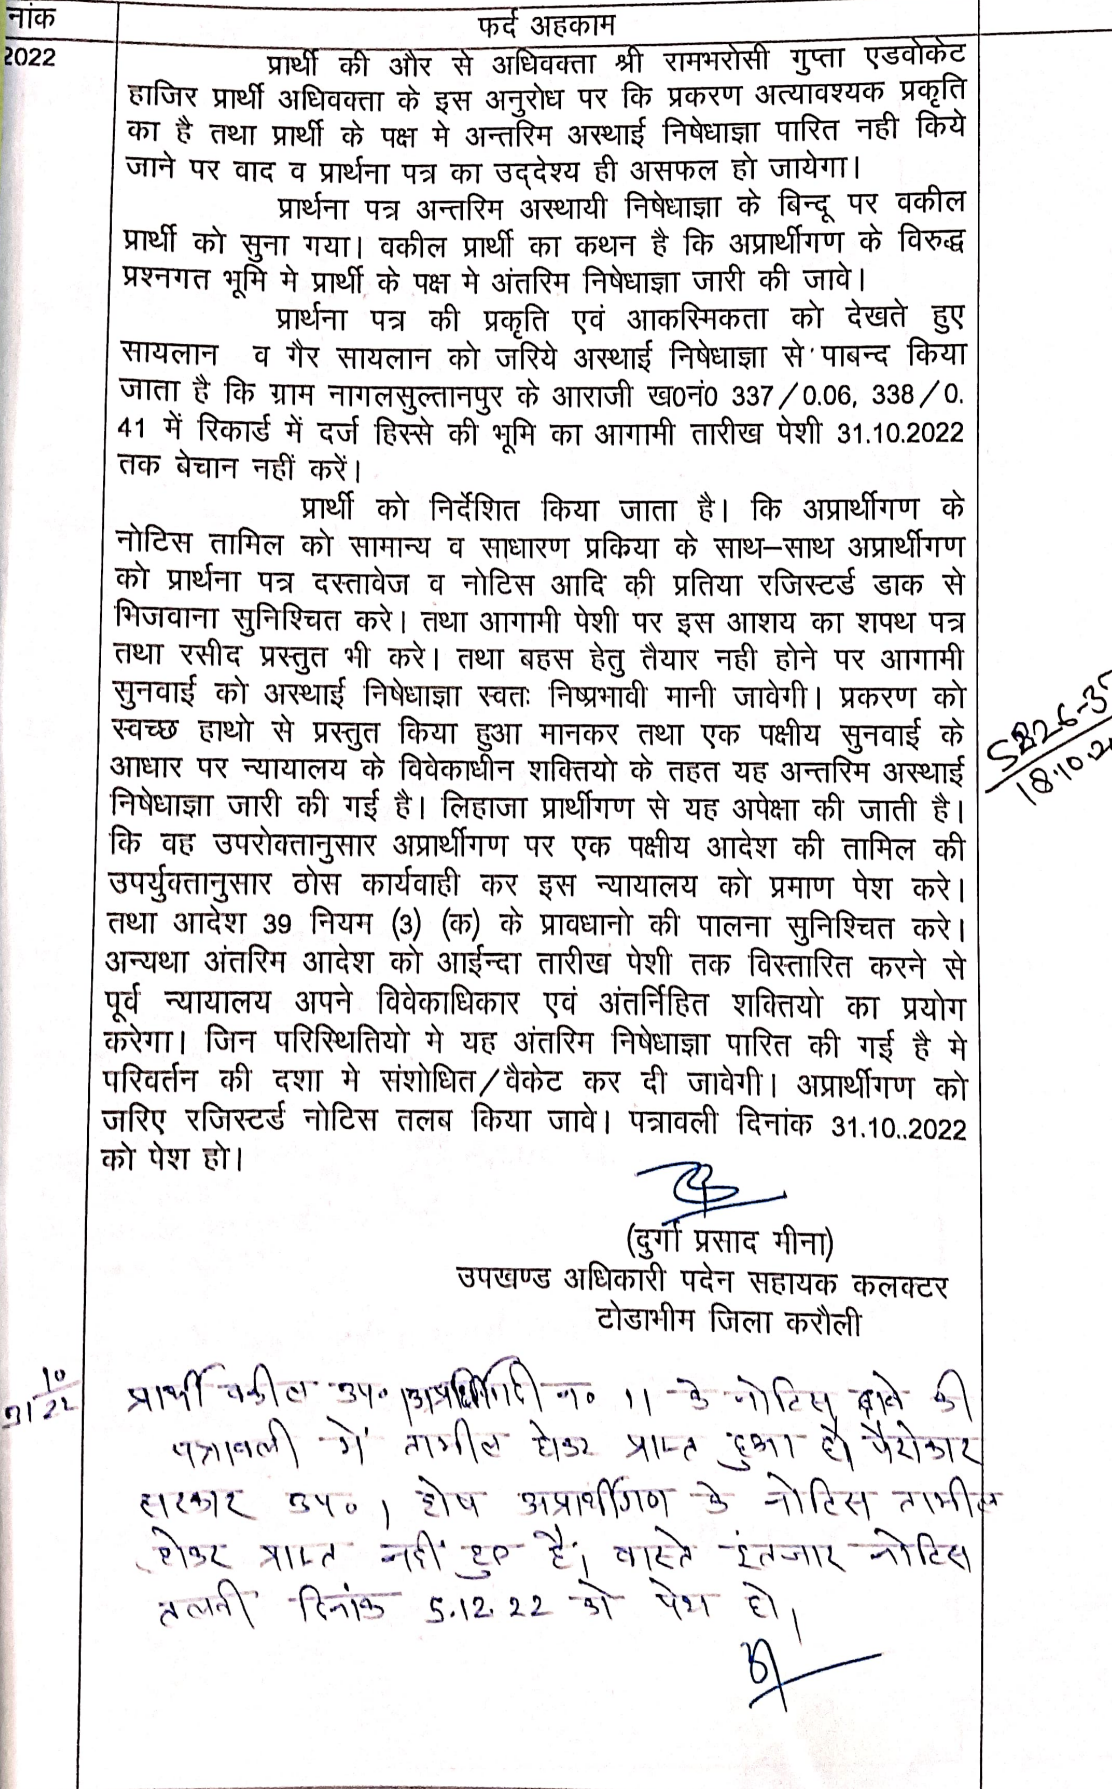 नांक
फर्द अहकाम
2022
प्रार्थी की और से अधिवक्ता श्री रामभरोसी गुप्ता एडवोकेट
हाजिर प्रार्थी अधिवक्ता के इस अनुरोध पर कि प्रकरण अत्यावश्यक प्रकृति
का है तथा प्रार्थी के पक्ष मे अन्तरिम अस्थाई निषेधाज्ञा पारित नही किये
जाने पर वाद व प्रार्थना पत्र का उद्देश्य ही असफल हो जायेगा।
प्रार्थना पत्र अन्तरिम अस्थायी निषेधाज्ञा के बिन्दू पर वकील
प्रार्थी को सुना गया। वकील प्रार्थी का कथन है कि अप्रार्थीगण के विरुद्ध
प्रश्नगत भूमि मे प्रार्थी के पक्ष मे अंतरिम निषेधाज्ञा जारी की जावे।
प्रार्थना पत्र की प्रकृति एवं आकस्मिकता को देखते हुए
सायलान व गैर सायलान को जरिये अस्थाई निषेधाज्ञा से पाबन्द किया
जाता है कि ग्राम नागलसुल्तानपुर के आराजी ख0नं0 337/0.06, 338/0.
41 में रिकार्ड में दर्ज हिस्से की भूमि का आगामी तारीख पेशी 31.10.2022
तक बेचान नहीं करें।
प्रार्थी को निर्देशित किया जाता है। कि अप्रार्थीगण के
नोटिस तामिल को सामान्य व साधारण प्रकिया के साथ–साथ अप्रार्थीगण
को प्रार्थना पत्र दस्तावेज व नोटिस आदि की प्रतिया रजिस्टर्ड डाक से
भिजवाना सुनिश्चित करे। तथा आगामी पेशी पर इस आशय का शपथ पत्र
तथा रसीद प्रस्तुत भी करे। तथा बहस हेतु तैयार नही होने पर आगामी
सुनवाई को अस्थाई निषेधाज्ञा स्वतः निष्प्रभावी मानी जावेगी। प्रकरण को
स्वच्छ हाथो से प्रस्तुत किया हुआ मानकर तथा एक पक्षीय सुनवाई के
आधार पर न्यायालय के विवेकाधीन शक्तियो के तहत यह अन्तरिम अस्थाई
निषेधाज्ञा जारी की गई है। लिहाजा प्रार्थीगण से यह अपेक्षा की जाती है।
कि वह उपरोक्तानुसार अप्रार्थीगण पर एक पक्षीय आदेश की तामिल की
उपर्युक्तानुसार ठोस कार्यवाही कर इस न्यायालय को प्रमाण पेश करे।
तथा आदेश 39 नियम (3) (क) के प्रावधानो की पालना सुनिश्चित करे।
अन्यथा अंतरिम आदेश को आईन्दा तारीख पेशी तक विस्तारित करने से
पूर्व न्यायालय अपने विवेकाधिकार एवं अंतर्निहित शक्तियो का प्रयोग
करेगा। जिन परिस्थितियो मे यह अंतरिम निषेधाज्ञा पारित की गई है मे
परिवर्तन की दशा मे संशोधित/वैकेट कर दी जावेगी। अप्रार्थीगण को
जरिए रजिस्टर्ड नोटिस तलब किया जावे। पत्रावली दिनांक 31.10..2022
को पेश हो।
18.10.2
(दुर्गा प्रसाद मीना)
उपखण्ड अधिकारी पदेन सहायक कलक्टर
टोडाभीम जिला करौली
31/10/22
प्रार्थी वकील उप०। नं० 11 के नोटिस की
पत्रावली में तामील होकर प्राप्त हुआ है। पैरोकार
सरकार उप०। शेष अप्रार्थीगण के नोटिस तामील
होकर प्राप्त नहीं हुए है। वास्ते इंतजार नोटिस
तलबी दिनांक 5.12.22 को पेश हो।